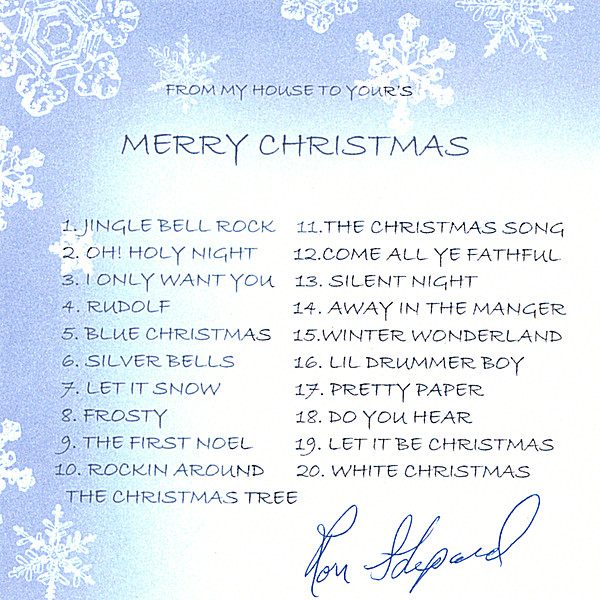 FROM MY HOUSE TO YOUR'S
MERRY CHRISTMAS
1. JINGLE BELL ROCK
2. OH! HOLY NIGHT
3. I ONLY WANT YOU
4. RUDOLF
5. BLUE CHRISTMAS
6. SILVER BELLS
7. LET IT SNOW
8. FROSTY
9. THE FIRST NOEL
10. ROCKIN AROUND
THE CHRISTMAS TREE
11.THE CHRISTMAS SONG
12.COME ALL YE FATHFUL
13. SILENT NIGHT
14. AWAY IN THE MANGER
15.WINTER WONDERLAND
16. LIL DRUMMER BOY
17. PRETTY PAPER
18. DO YOU HEAR
19. LET IT BE CHRISTMAS
20. WHITE CHRISTMAS
Ron Shepard